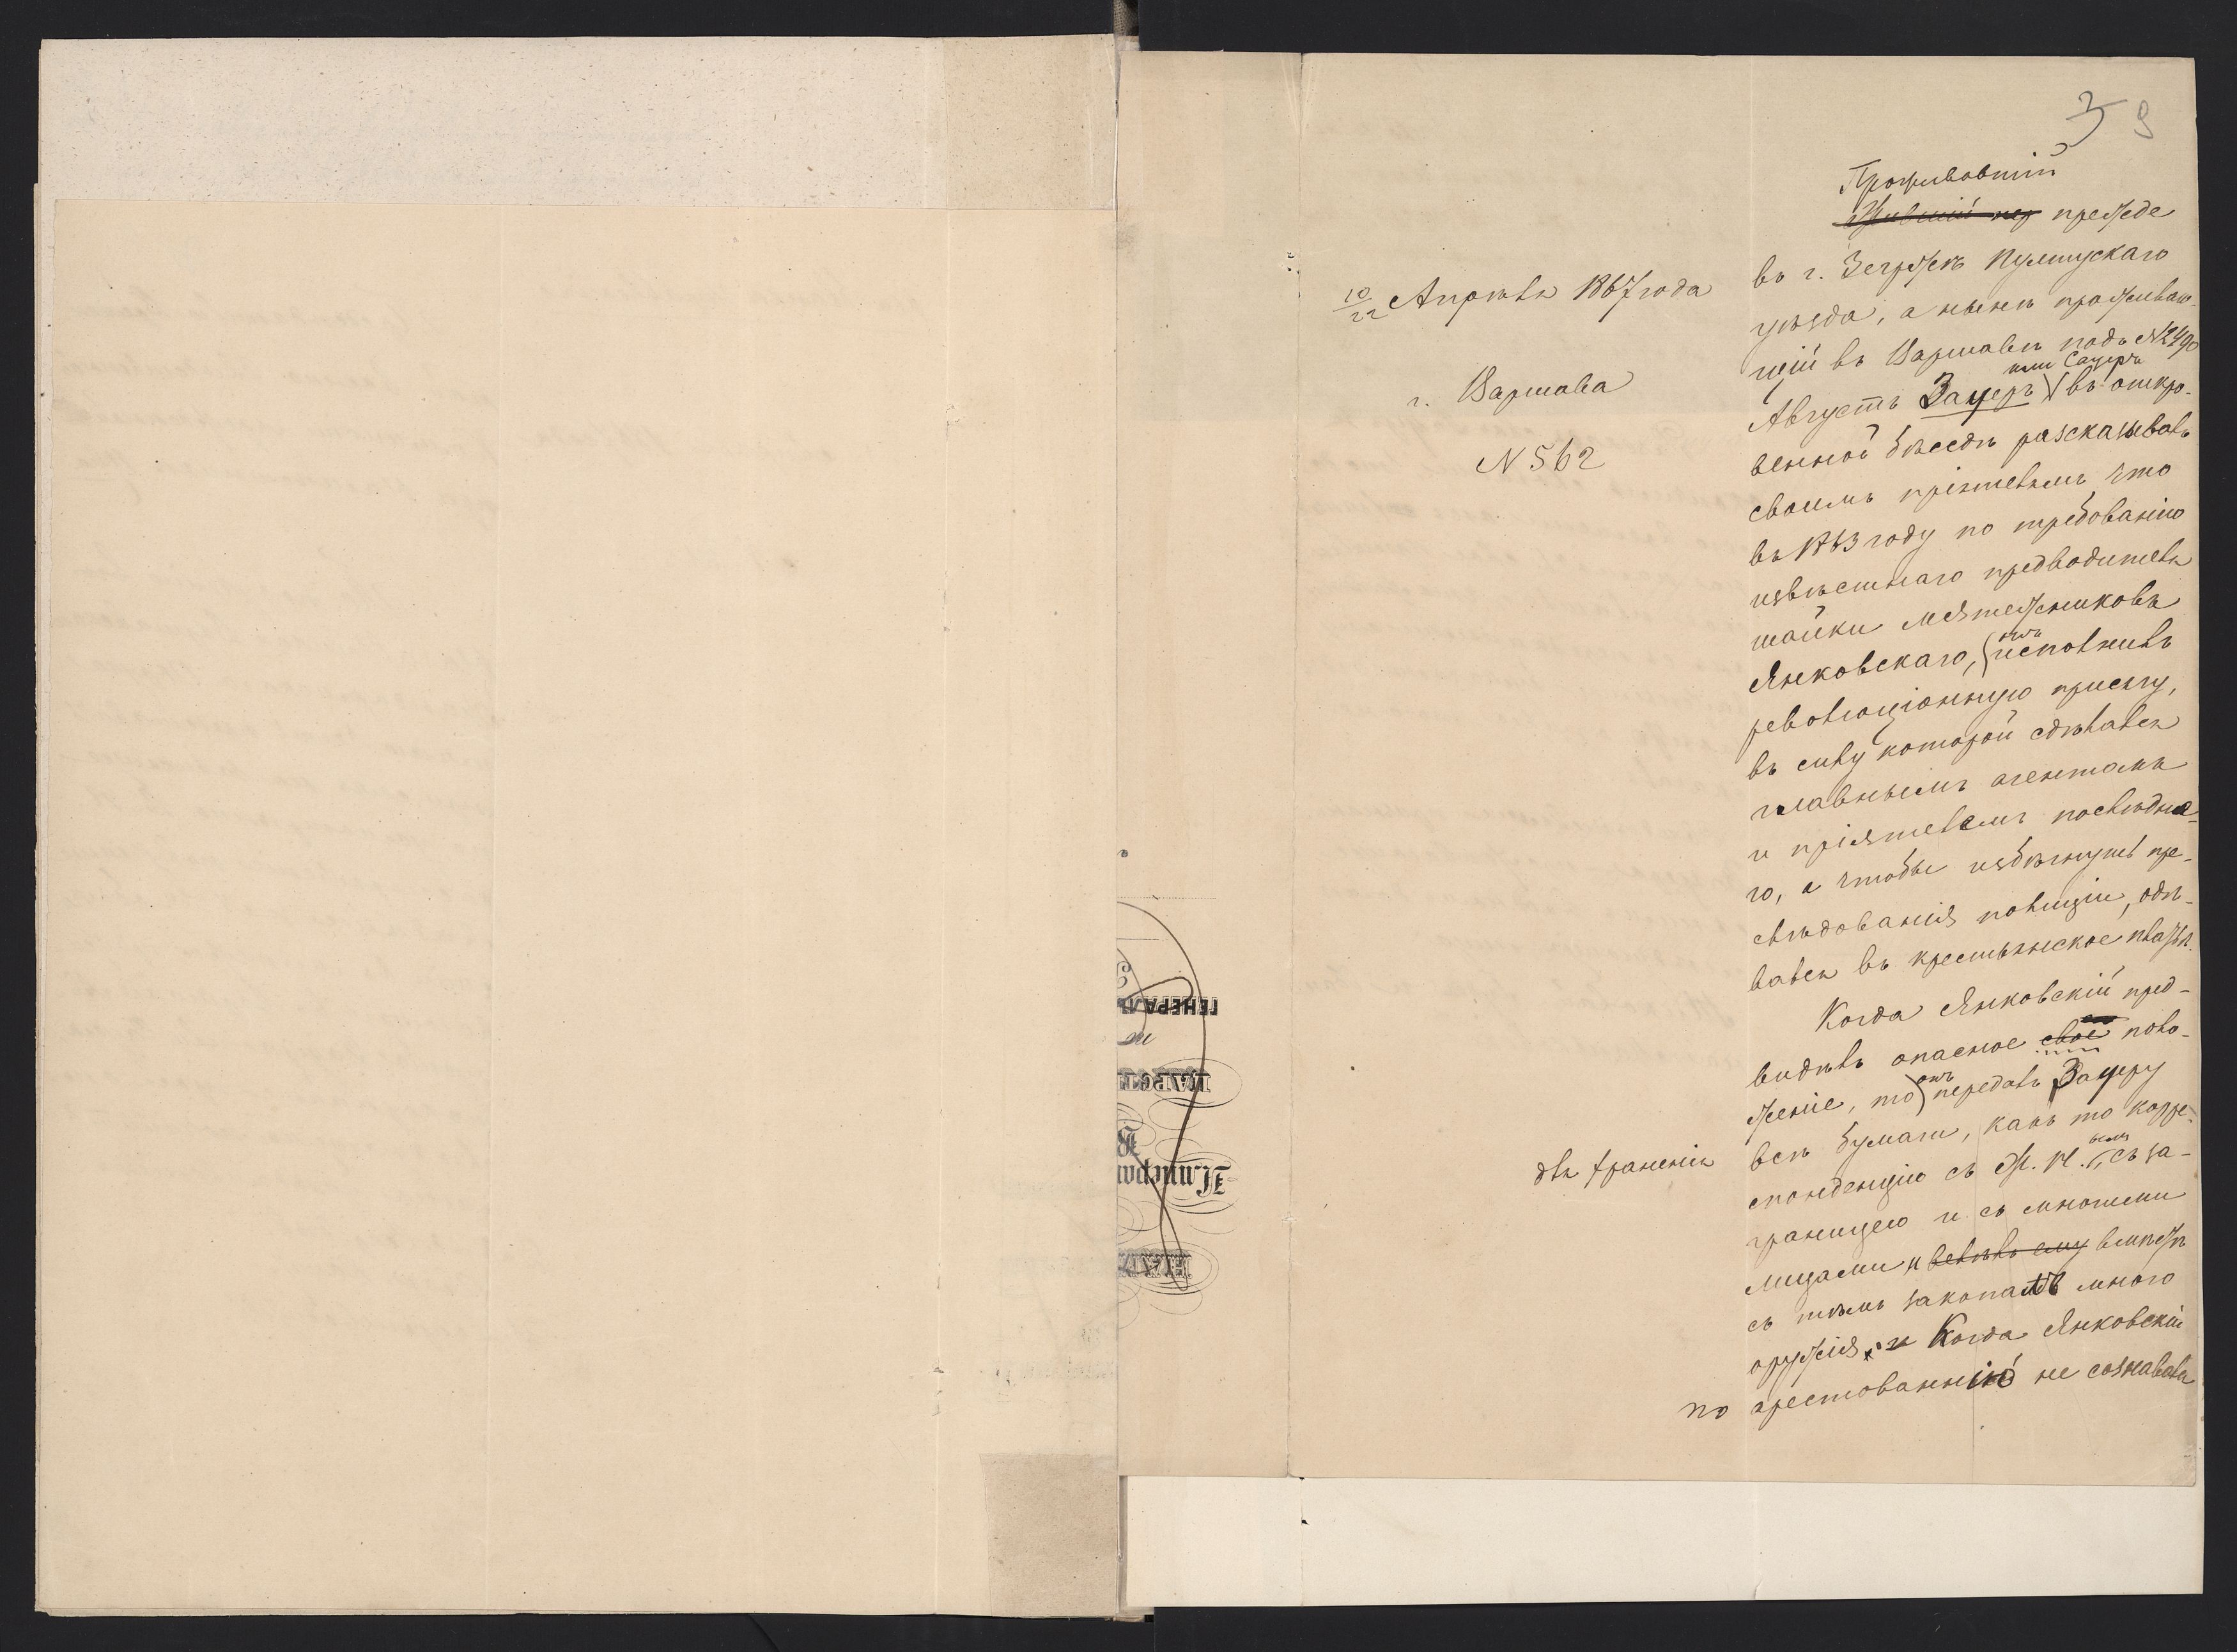 3 9
10/22 Апрѣля 1867 года
г. Варшава
N 562
Проживавшій
Жившій преж прежде
въ г. Зегржѣ Пултускаго
уѣзда, а нынѣ проживаю-
щій въ Варшавѣ подъ N 2490
или Сауеръ
Августъ Зауеръ въ откро-
венной бесѣдѣ разсказывалъ
своимъ пріятелямъ что
въ 1863 году по требованію
извѣстнаго предводителя
шайки мятежниковъ
онъ
Янковскаго, исполнилъ
революціонную присягу,
въ силу которой сдѣлался
главнымъ агентомъ
и пріятелемъ послѣдня-
го, а чтобы избѣгнуть пре-
слѣдованія полиціи, одѣ-
вался въ крестьянское платье.
Когда Янковскій пред-
видѣлъ опасное свое поло-
онъ
женіе, то передалъ Зауеру
всѣ бумаги, какъ то корре-
спонденцію съ Ж. Н. съ за-
для храненія
границею и съ многими
лицами и велѣлъ ему вмѣстѣ
съ тѣмъ закопалъ много
оружія. и Когда Янковскій
по арестованніи не сознавался
ГЕНЕРАЛЬ
ЦАРСТ